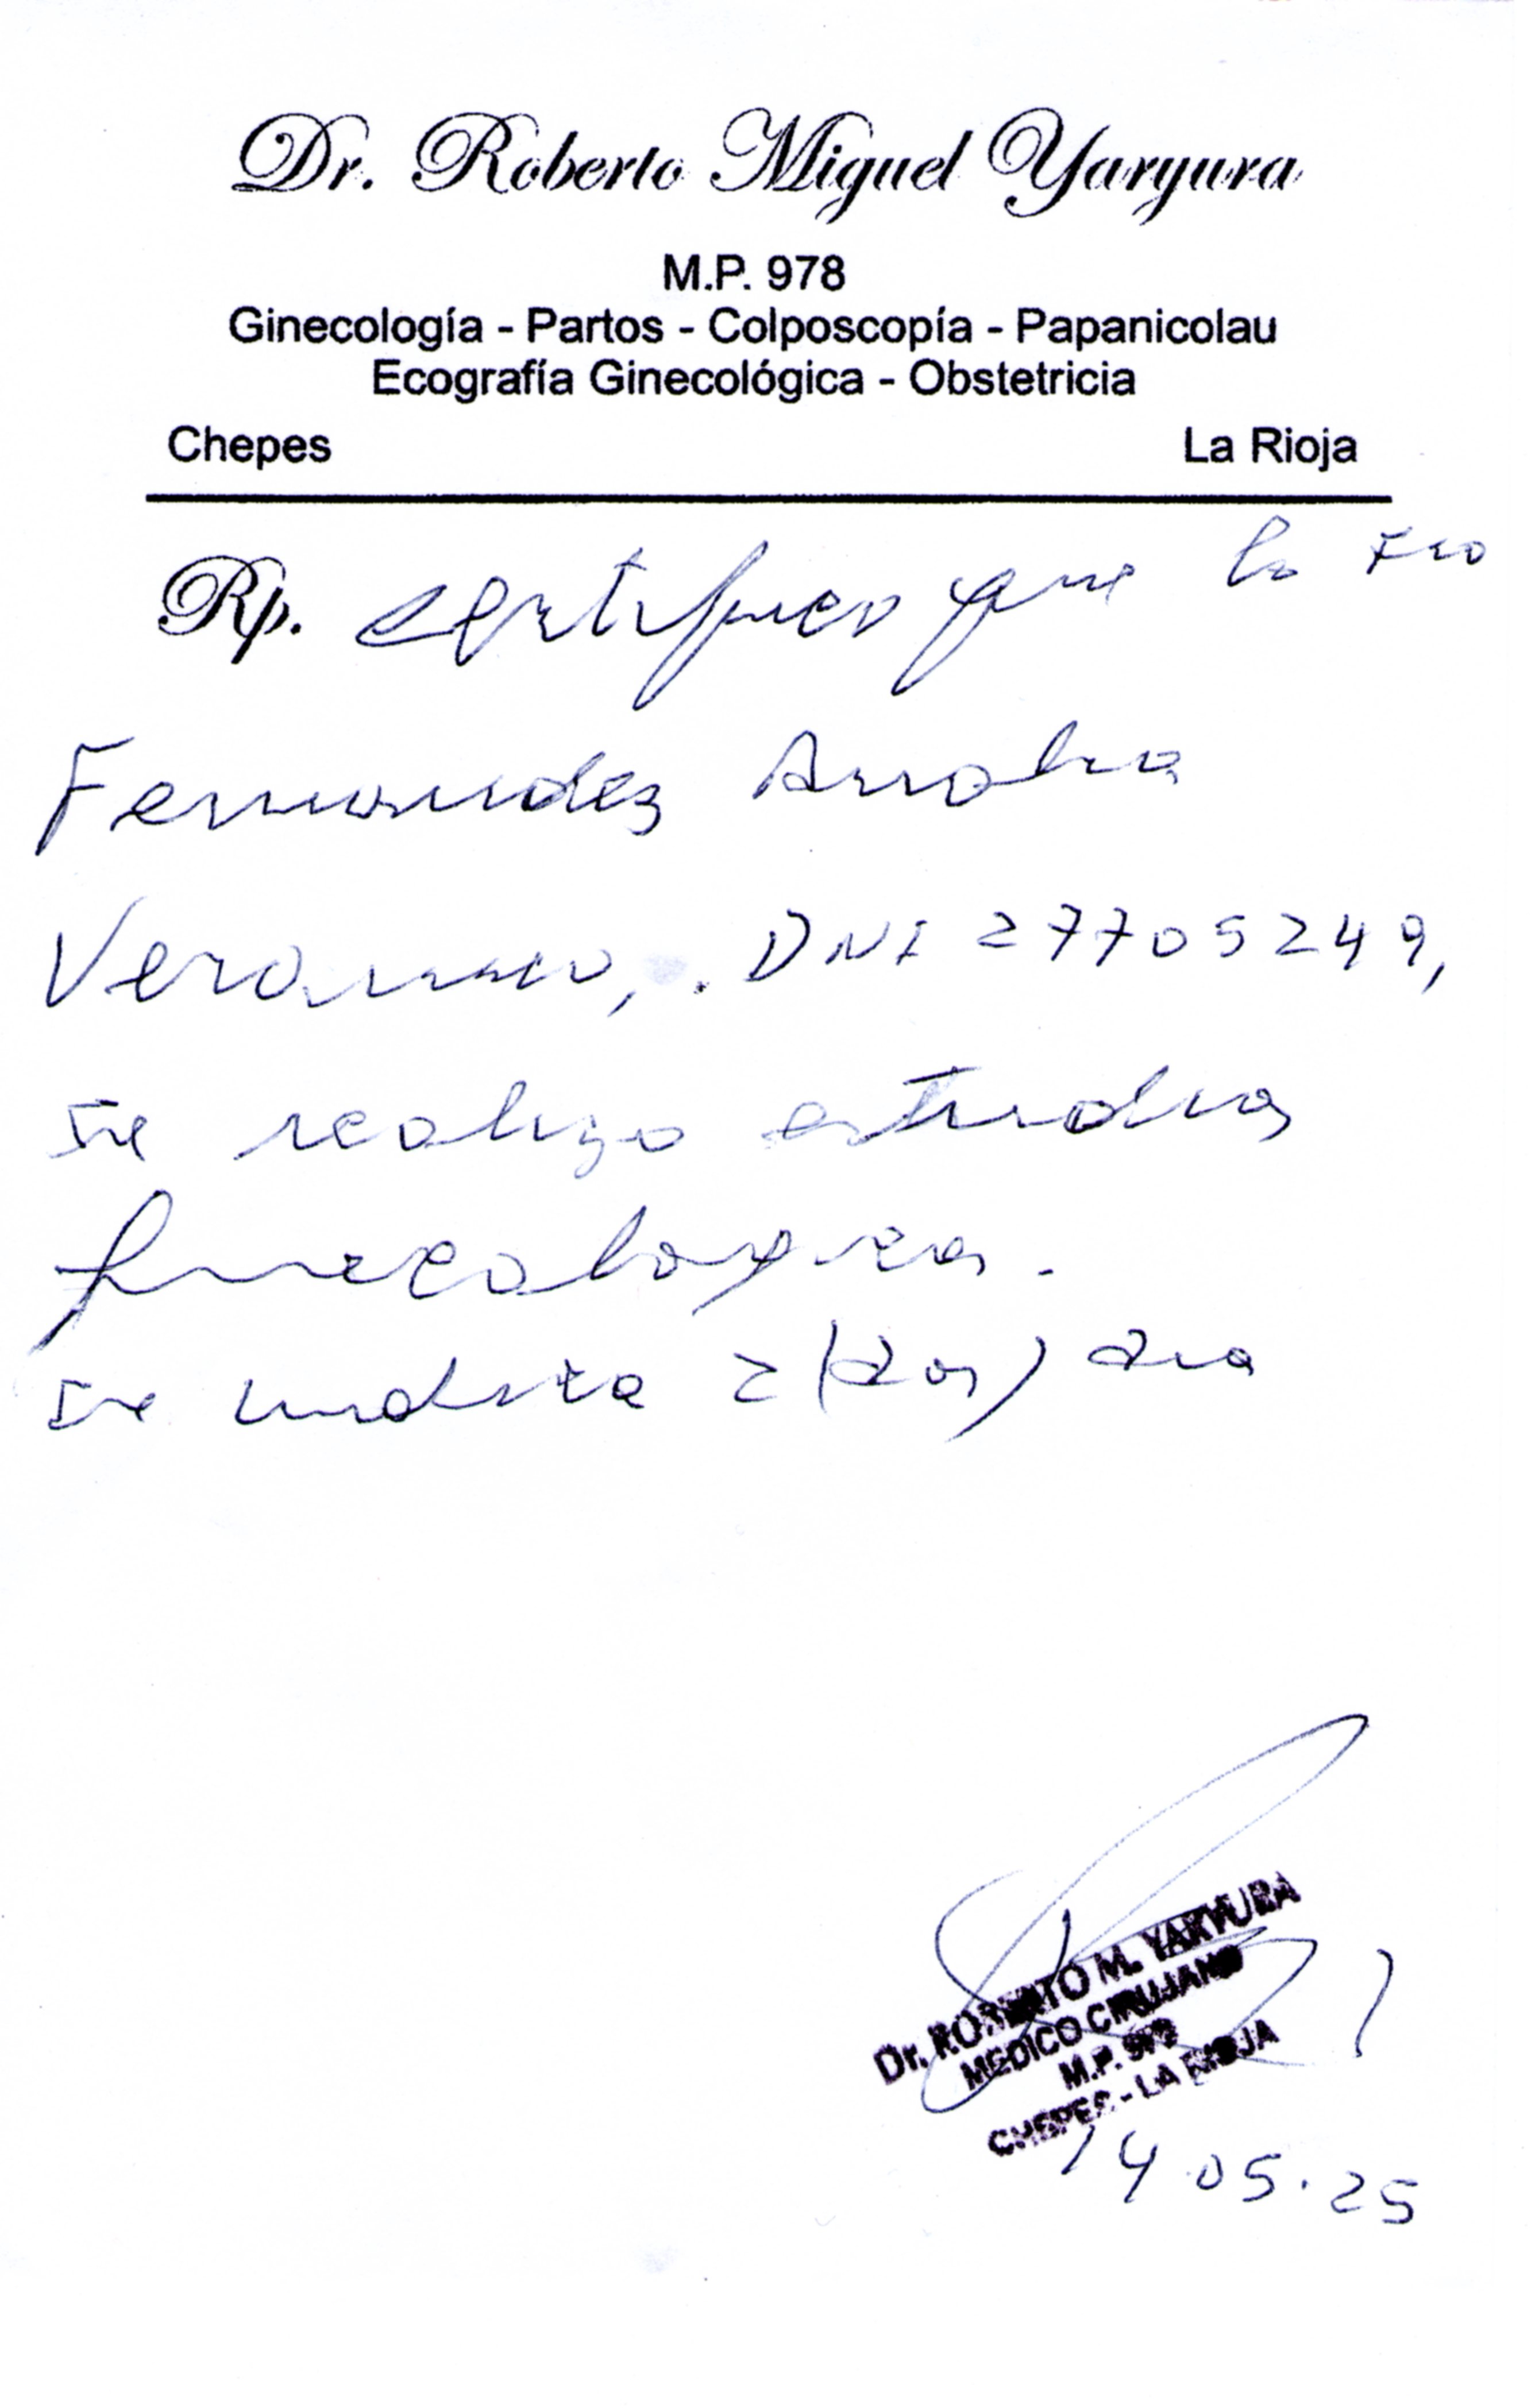 Dr. Roberto Miguel Yaryura
M.P. 978
Ginecología - Partos - Colposcopía - Papanicolau
Ecografía Ginecológica - Obstetricia
Chepes La Rioja
Rp. Certifico que la Sra
Fernandez Analia
Veronica, . DNI 27705249,
se realizo estudios
ginecologicos.
Se indica 2 (dos) dia
Dr. ROBERTO M. YARYURA
MEDICO CIRUJANO
M.P. 978
CHEPES - LA RIOJA
14.05.25